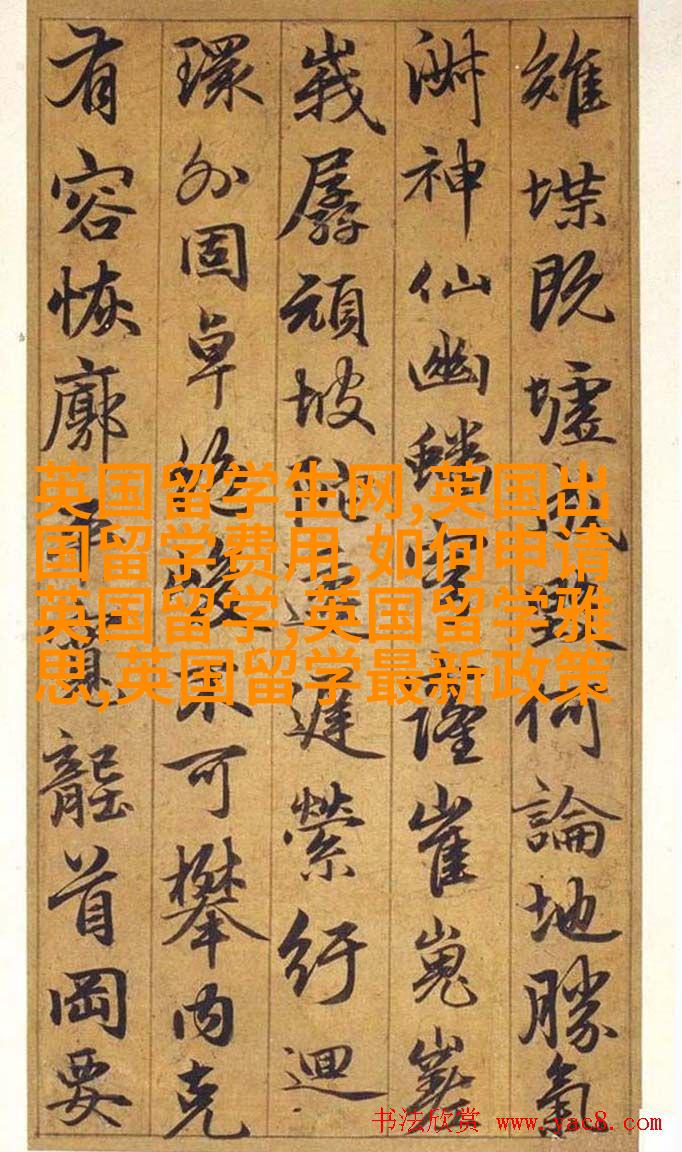 雉堞既墟何論地勝氣
神仙幽蟠隆崔嵬嵳
峩孱頑坡遲縈紆迴
環外固卓絕不可攀内克
有容恢廓首岡要
英国留学生网,英国出
国留学费用,如何申请
英国留学,英国留学雅
思,英国留学最新政策
书法欣赏 www.yac8.com